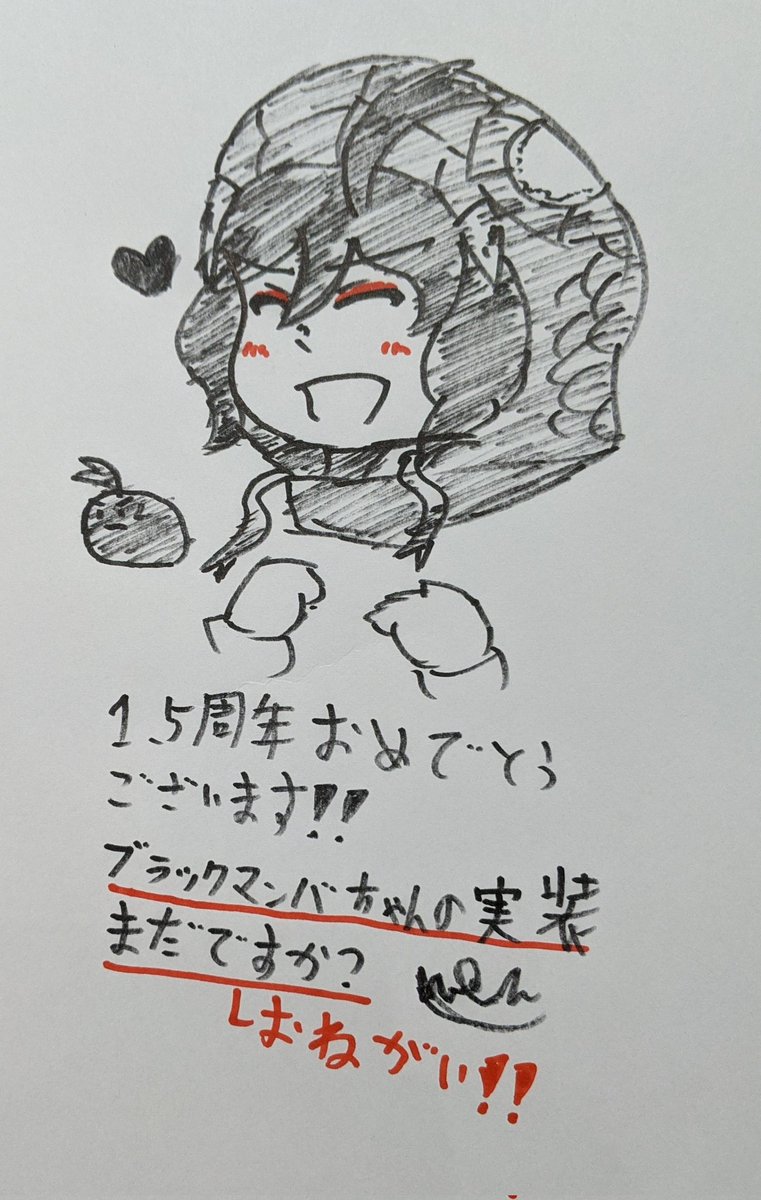 1.5周年おめでとう
ございます!!
ブラックマンバちゃんの実装
まだですか?
おねがい!!